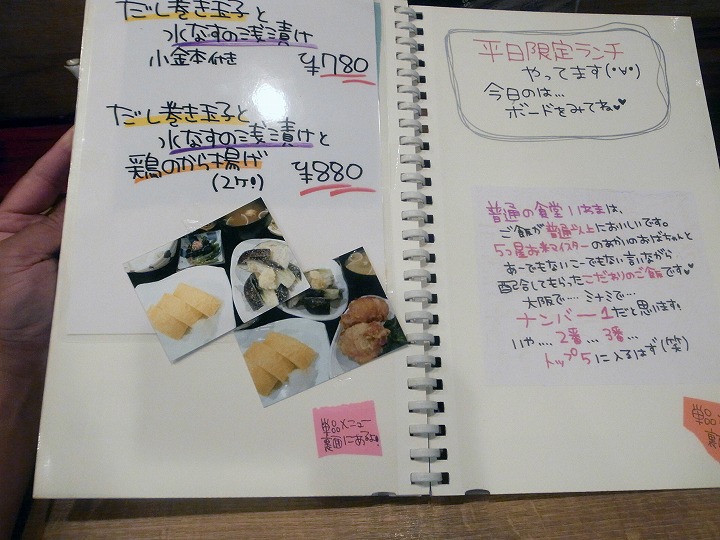 だし巻き玉子と
水なすの浅漬け
小金本付き ¥780
だし巻き玉子と
水なすの浅漬けと
鶏のから揚げ
(2ヶ!) ¥880
単品メニュー
裏面にあるよ!
平日限定ランチ
やってます(・v・)
今日のは…
ボードをみてね♥♥
普通の食堂いわまは、
ご飯が普通以上においしいです。
5つ星お米マイスターのあかいのおばちゃんと
あーでもないこーでもない言いながら
配合してもらったこだわりのご飯です♥
大阪で…ミナミで…
ナンバー1だと思います。
いや…2番…3番…
トップ5に入るはず(笑)
単品
裏